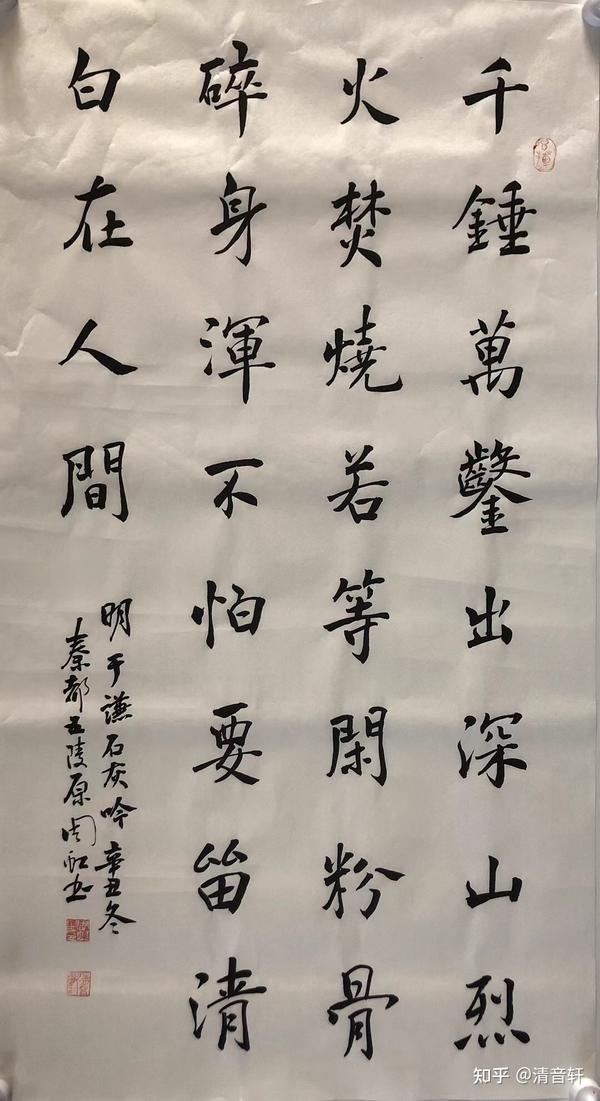 千錘萬鑿出深山烈
火焚燒若等閑粉骨
碎身渾不怕要留清
白在人間
明于謙石灰吟辛丑冬
秦都五陵原周
知乎 @清音轩